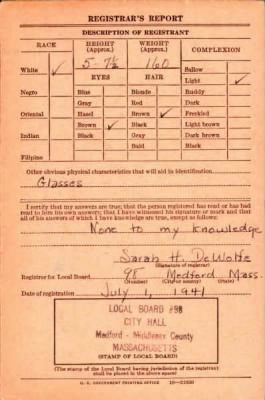 REGISTRAR'S REPORT
DESCRIPTION OF REGISTRANT
RACE HEIGHT (Approx.) WEIGHT (Approx.) COMPLEXION
White ✓ 5-7½ 160 Sallow
EYES HAIR Light ✓
Negro Blue Blonde Ruddy
Gray Red Dark
Oriental Hazel Brown ✓ Freckled
Brown ✓ Black Light brown
Indian Black Gray Dark brown
Bald Black
Filipino
Other obvious physical characteristics that will aid in identification
Glasses
I certify that my answers are true; that the person registered has read or has had
read to him his own answers; that I have witnessed his signature or mark and that
all of his answers of which I have knowledge are true, except as follows:
None to my knowledge
Sarah H. DeWolfe
(Signature of registrar)
Registrar for Local Board 98 Medford Mass.
(Number) (City or county) (State)
Date of registration July 1, 1941
LOCAL BOARD #98
CITY HALL
Medford - Middlesex County
MASSACHUSETTS
(STAMP OF LOCAL BOARD)
(The stamp of the Local Board having jurisdiction of the registrant
shall be placed in the above space)
U. S. GOVERNMENT PRINTING OFFICE